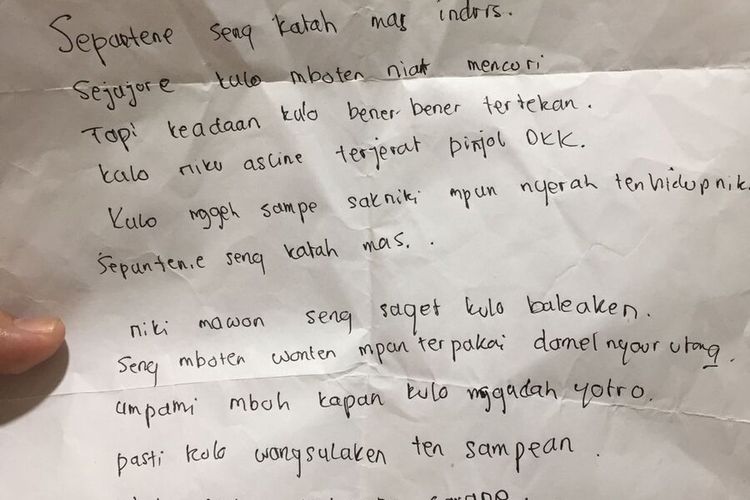 Sepuntene seng katah mas indris.
Sejujore kulo mboten niat mencuri
Tapi keadaan kulo bener-bener tertekan.
kulo niku asline terjerat pinjol DKK.
Kulo nggeh sampe sakniki mpun nyerah ten hidup nik.
Sepunten.e seng katah mas..
niki mawon seng saget kulo baleaken.
Seng mboten wonten mpun terpakai damel nyaur utang.
umpami mboh kapan kulo nggadah yotro.
pasti kulo wangsulaken ten sampean.